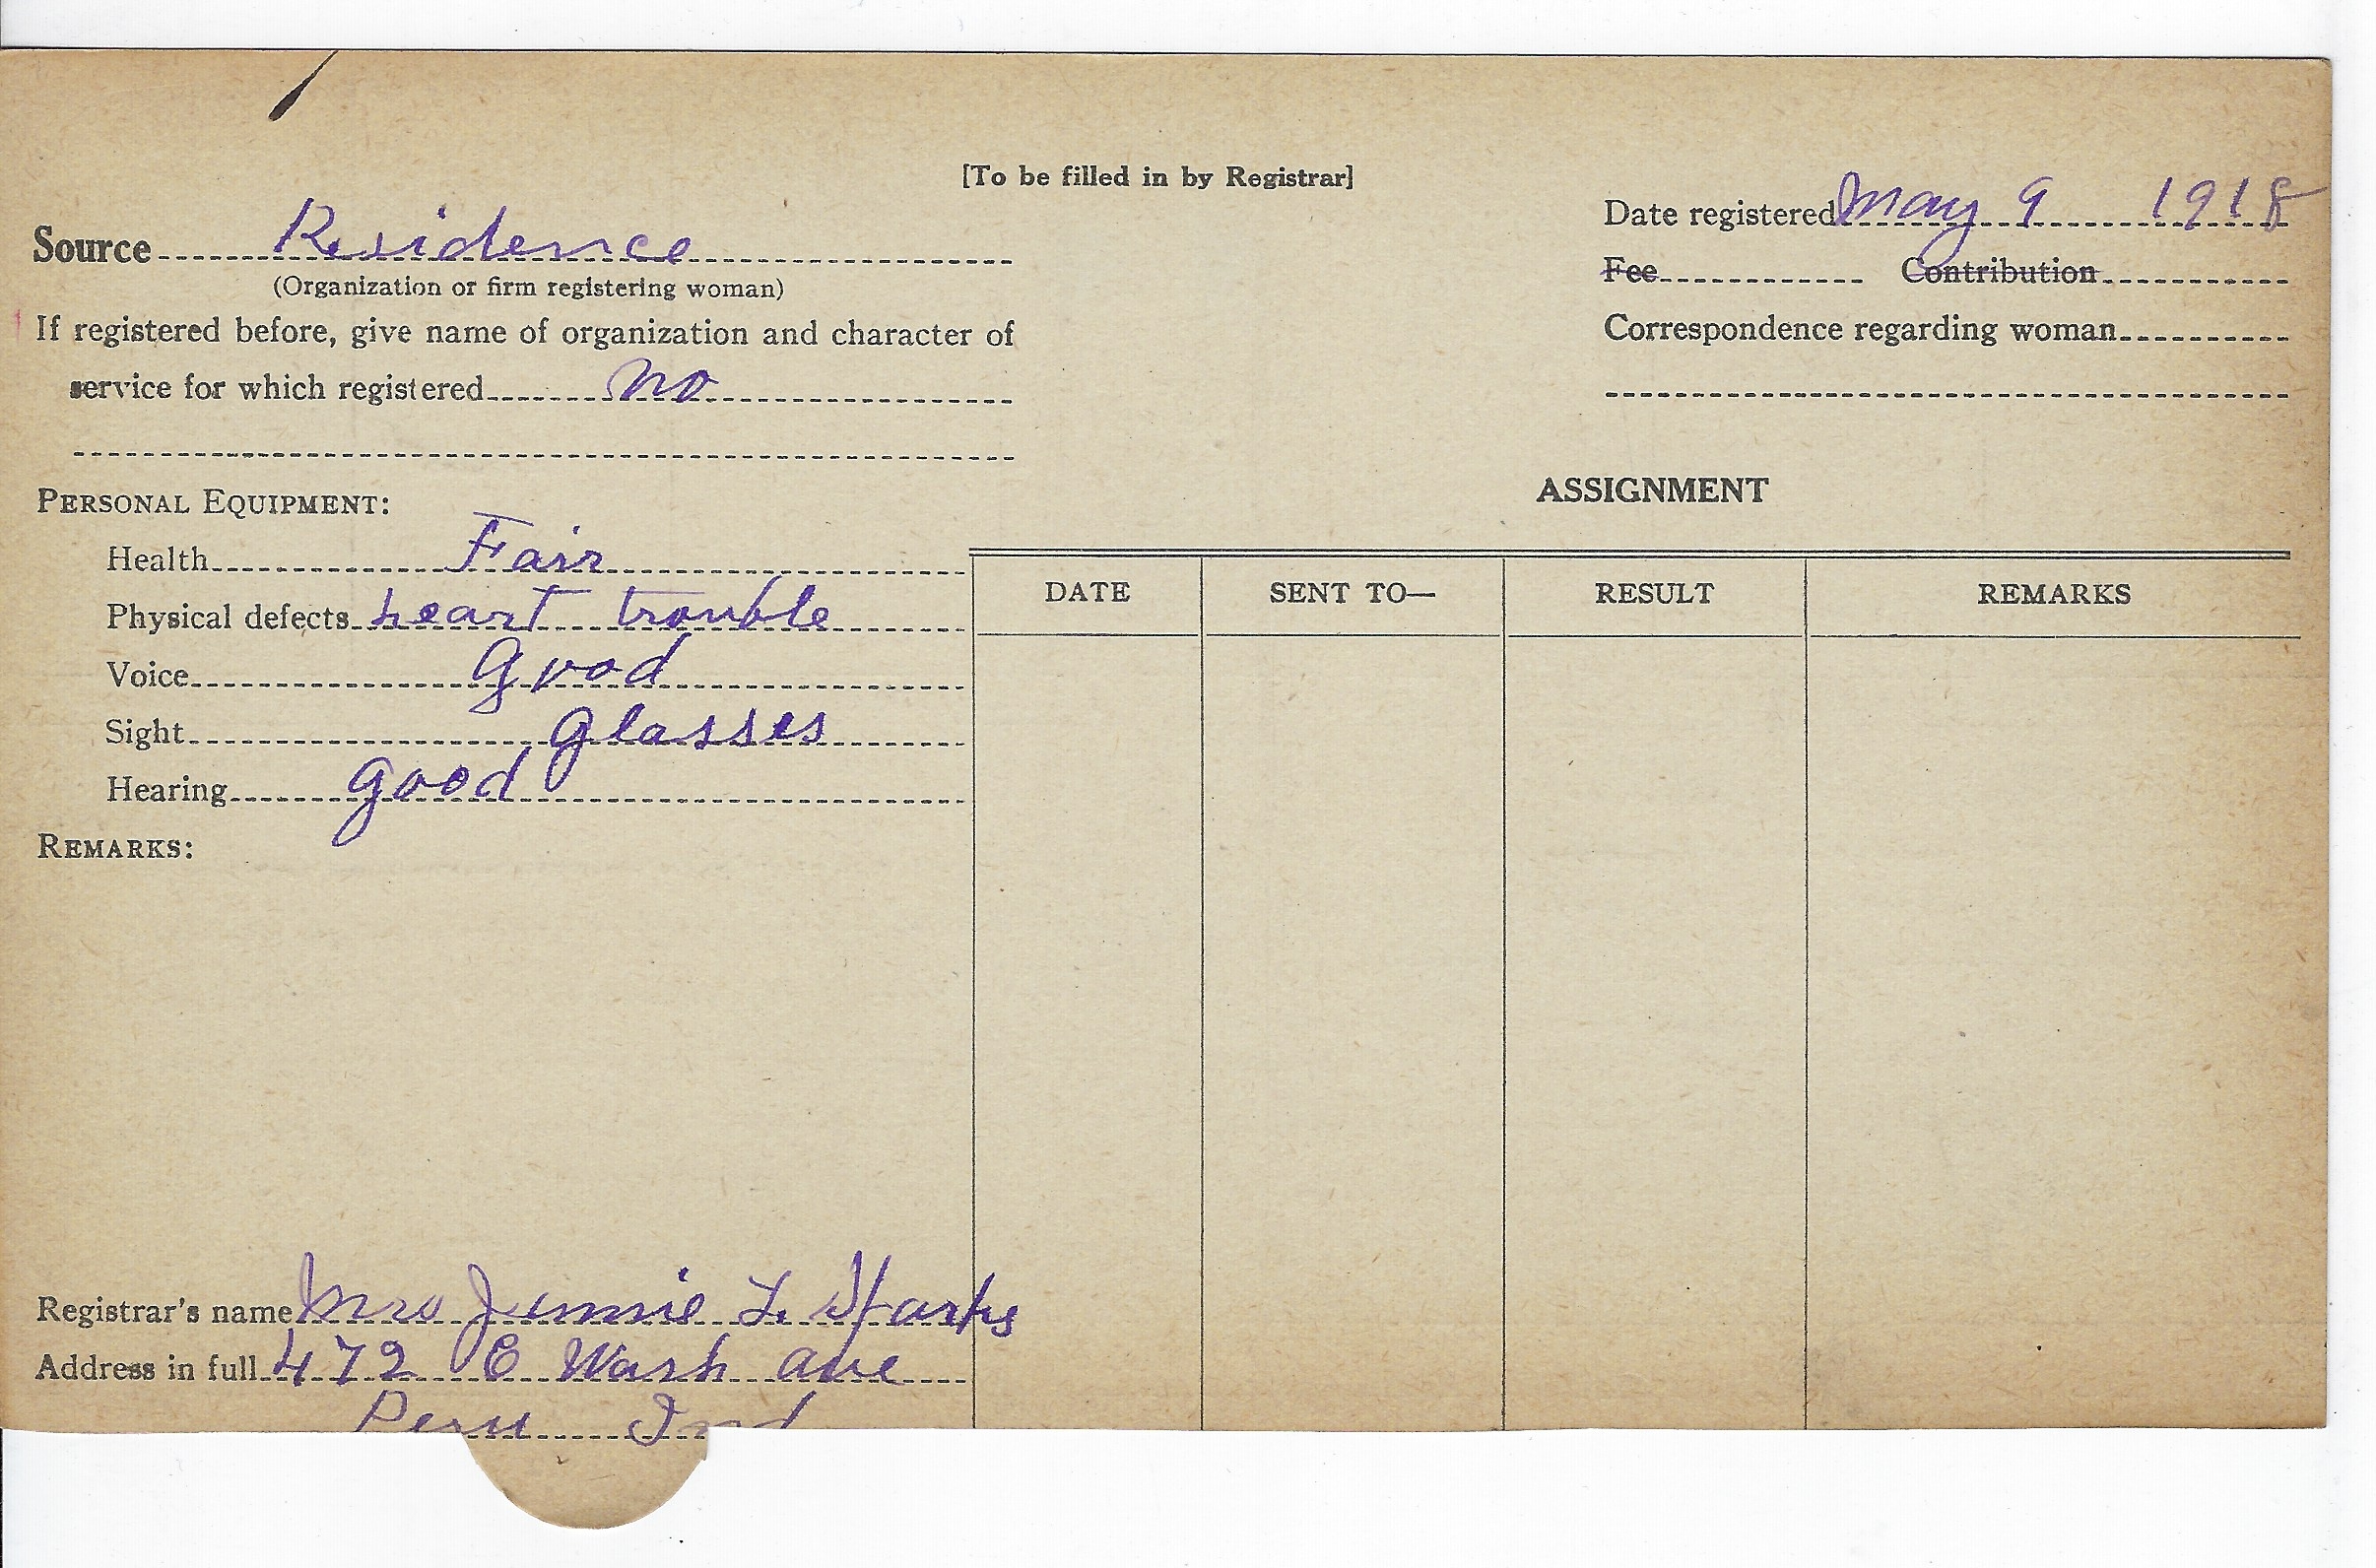 [To be filled in by Registrar]
Source Residence
(Organization or firm registering woman)
If registered before, give name of organization and character of
service for which registered no
Date registered May 9 1918
Fee Contribution
Correspondence regarding woman
PERSONAL EQUIPMENT:
Health Fair
Physical defects heart trouble
Voice Good
Sight glasses
Hearing good
REMARKS:
ASSIGNMENT
DATE SENT TO— RESULT REMARKS
Registrar's name Mrs Jennie L. Sparks
Address in full 472 E Wash ave
Peru Ind